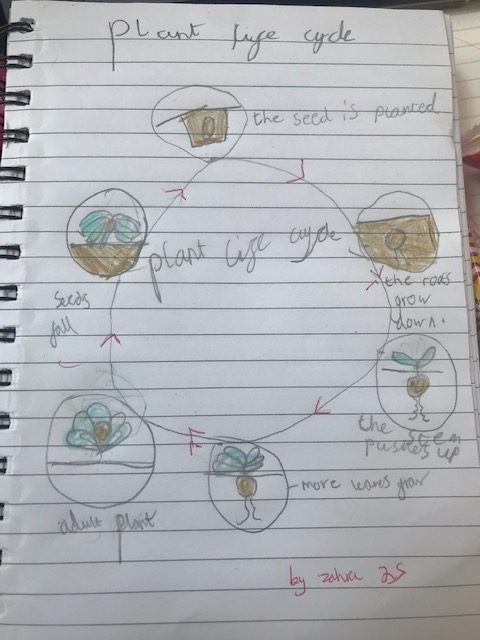 plant life cycle
the seed is planted
plant life cycle
the roots
grow
down.
the stem
pushes up
more leaves grow
adult plant
seeds
fall
by zahra